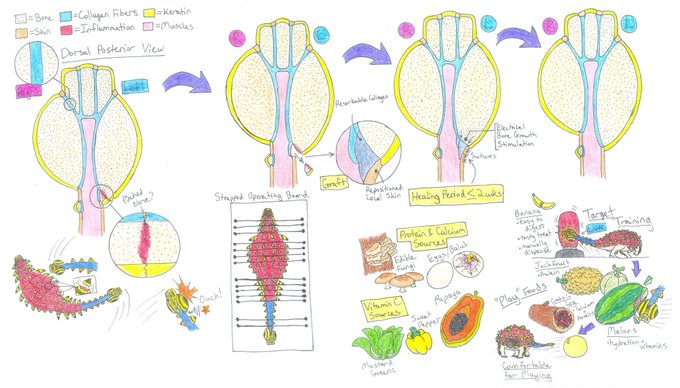 =Bone =Collagen Fibers =Keratin
=Skin =Inflammation =Muscles
Dorsal Posterior View
Right
Left
R L
R L
R L
Resorbable Collagen
Graft
Repositioned
Local Skin
Electrical
Bone Growth
Stimulation
Sutures
Healing Period ≤ 2wks
Nerve?
Ouch!
Strapped Operating Board
Protein & Calcium
Sources
Edible
Fungi
Eggs/Balut
Vitamin C
Sources
Mustard
Greens
Sweet
Pepper
Papaya
Banana
-easy to
digest
-tasty treat
-manually
dispense
Target
Training
Jackfruit
-Protein
"Play" Foods
Melons
-hydration
-vitamins
Comfortable
for Playing